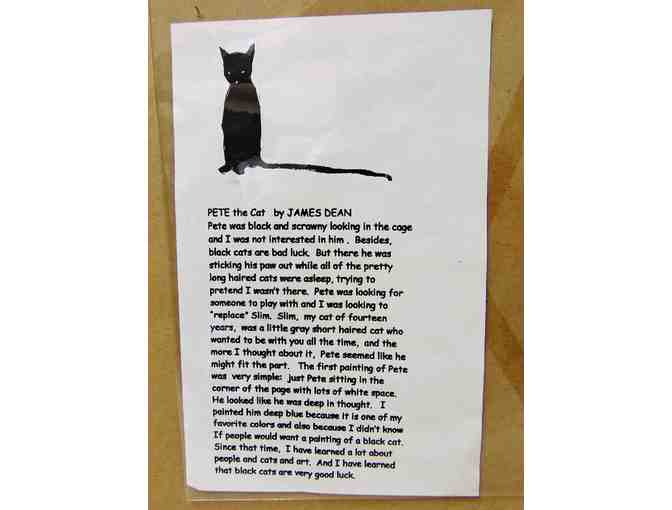 PETE the Cat by JAMES DEAN
Pete was black and scrawny looking in the cage
and I was not interested in him . Besides,
black cats are bad luck. But there he was
sticking his paw out while all of the pretty
long haired cats were asleep, trying to
pretend I wasn't there. Pete was looking for
someone to play with and I was looking to
"replace" Slim. Slim, my cat of fourteen
years, was a little gray short haired cat who
wanted to be with you all the time, and the
more I thought about it, Pete seemed like he
might fit the part. The first painting of Pete
was very simple: just Pete sitting in the
corner of the page with lots of white space.
He looked like he was deep in thought. I
painted him deep blue because it is one of my
favorite colors and also because I didn't know
If people would want a painting of a black cat.
Since that time, I have learned a lot about
people and cats and art. And I have learned
that black cats are very good luck.